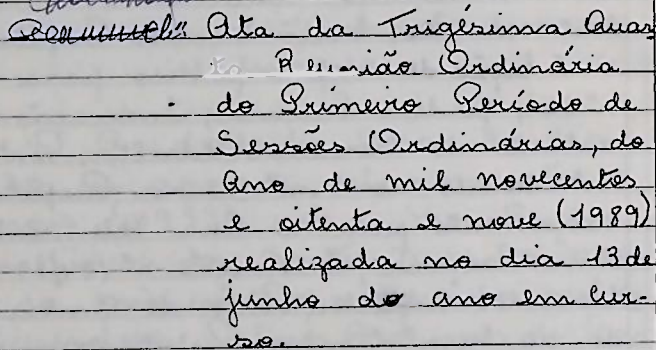 Ata da Trigésima Quar
ta Reunião Ordinária
do Primeiro Período de
Sessões Ordinárias, do
Ano de mil novecentos
e oitenta e nove (1989)
realizada no dia 13 de
junho do ano em cur-
so.